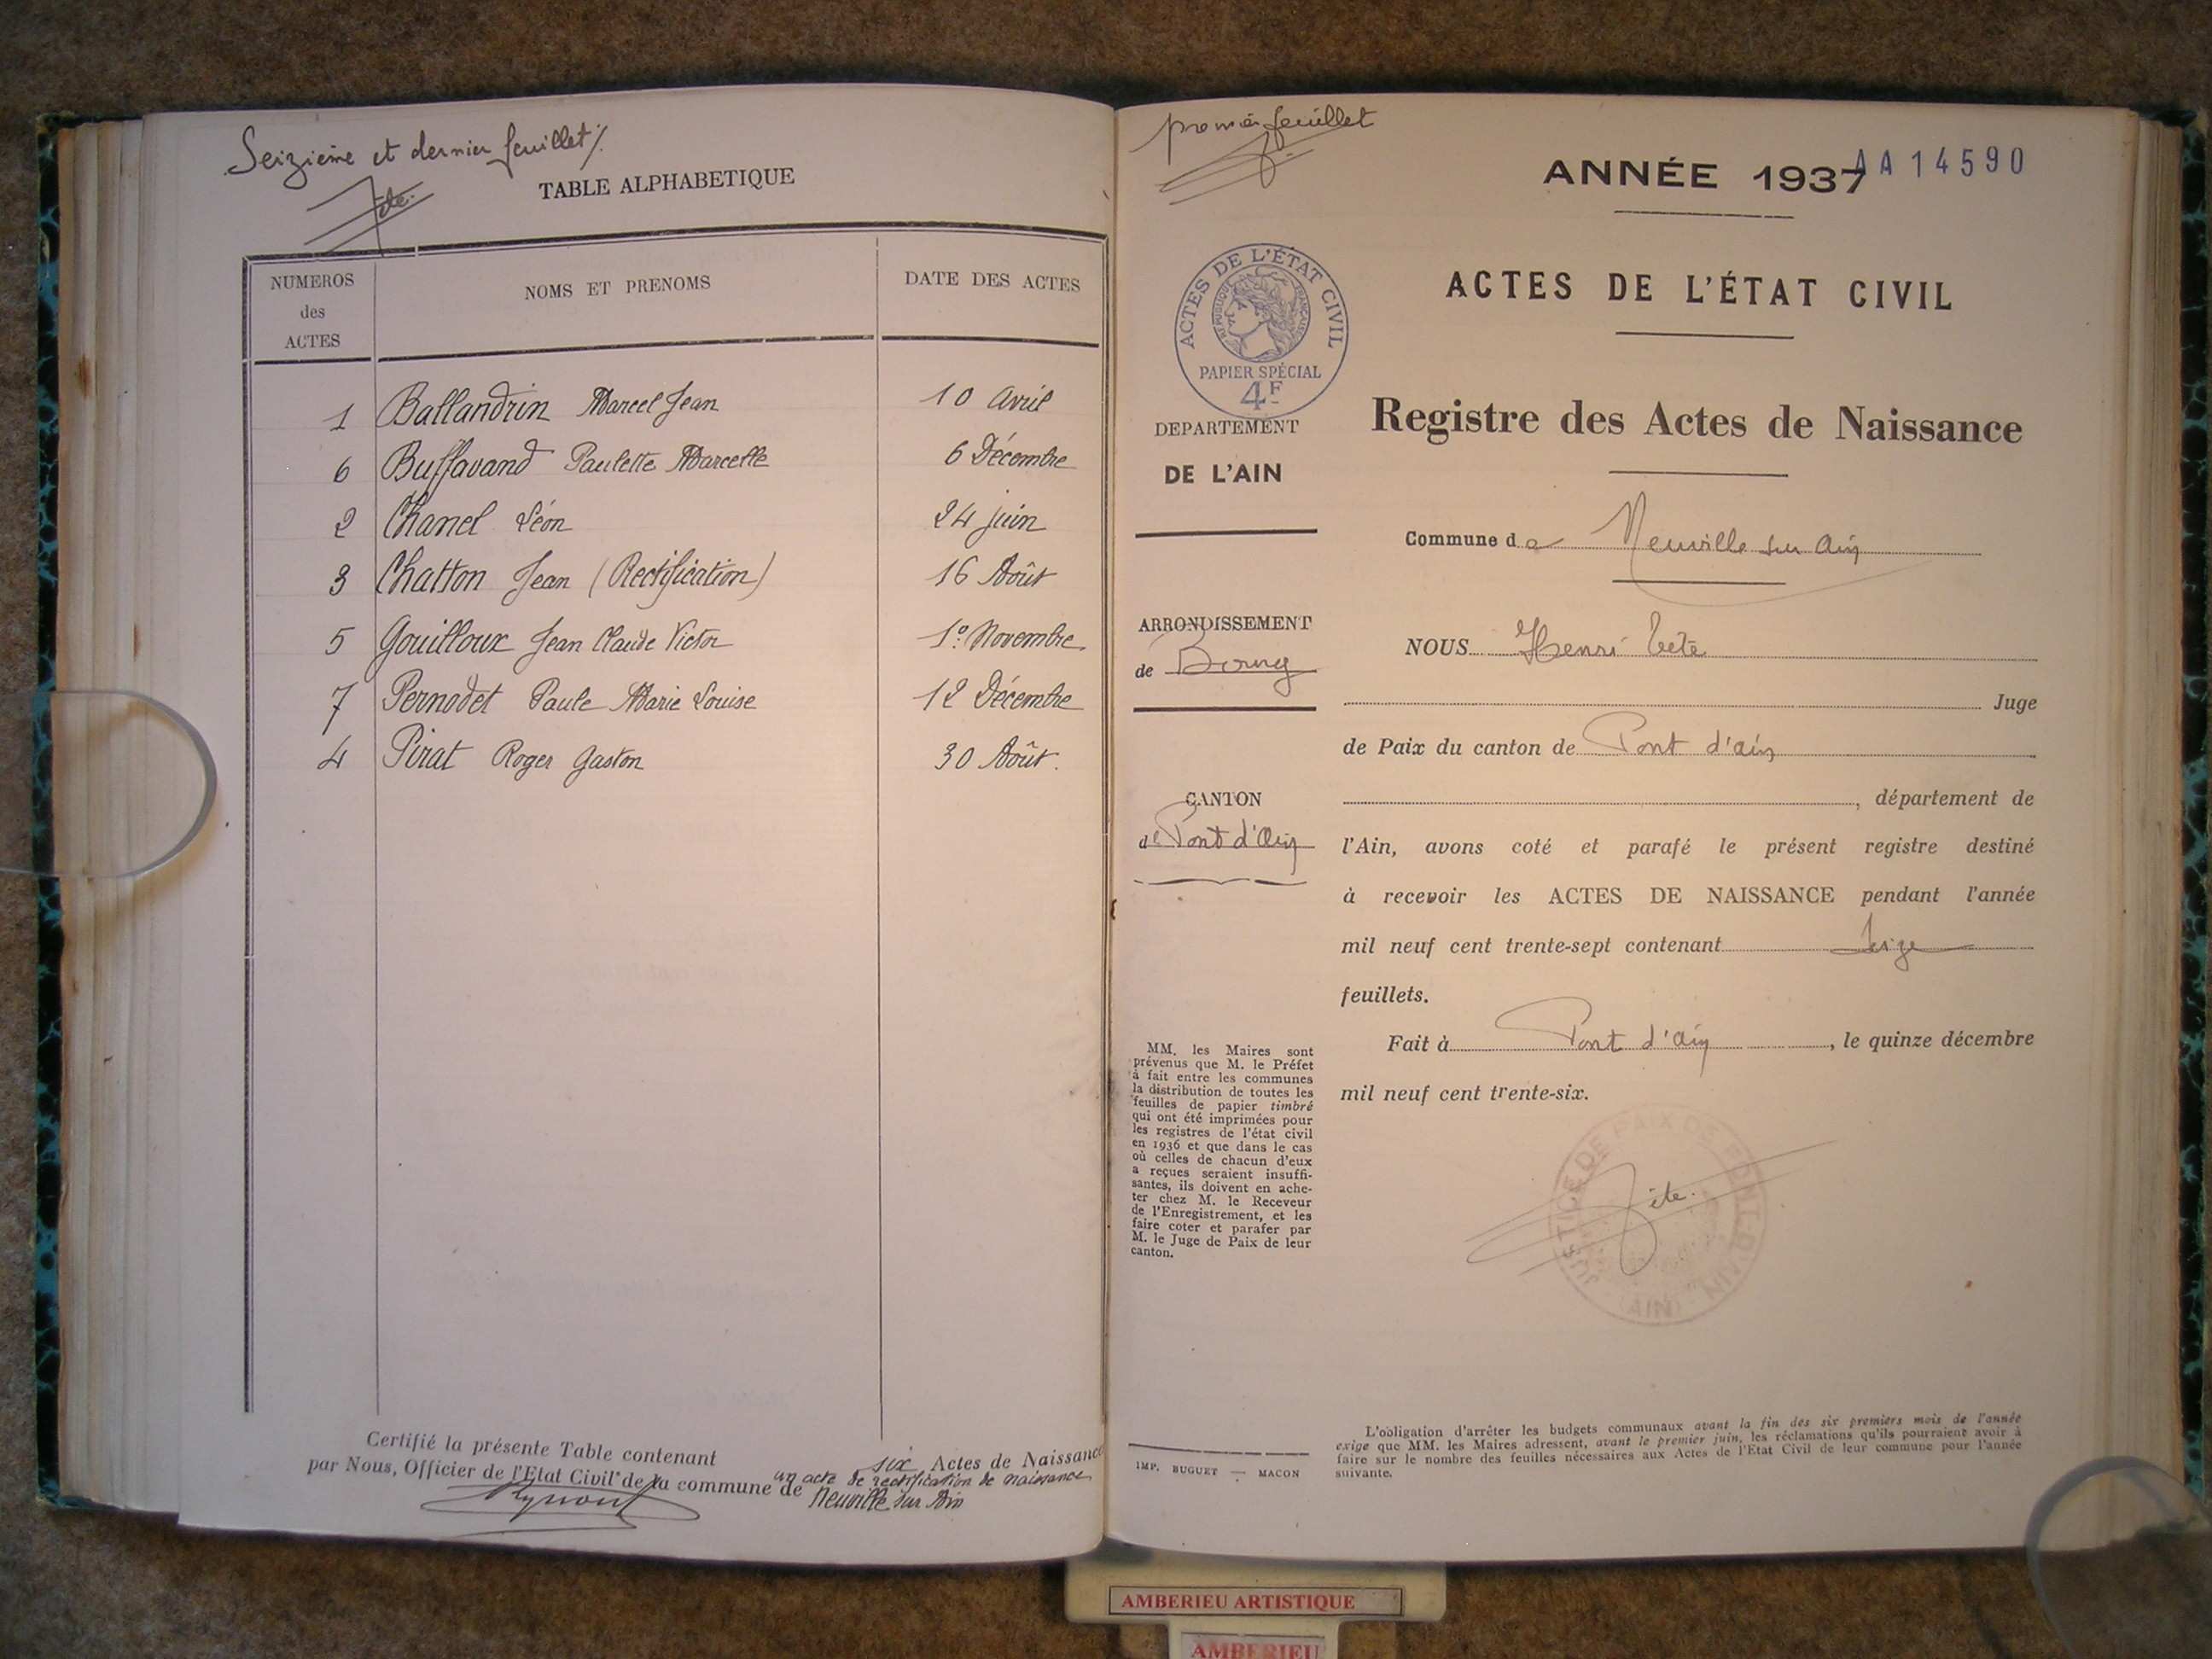 Seizième et dernier feuillet
TABLE ALPHABETIQUE
NUMEROS
des
ACTES
NOMS ET PRENOMS
DATE DES ACTES
1 Ballandrin Marcel Jean 10 Avril
6 Buffavand Paulette Marcelle 6 Décembre
2 Chanel Léon 24 juin
3 Chatton Jean (Rectification) 16 Août
5 Gouilloux Jean Claude Victor 1º Novembre
7 Pernodet Paule Marie Louise 12 Décembre
4 Pirat Roger Gaston 30 Août.
Certifié la présente Table contenant six Actes de Naissance
un acte de rectification de naissance
par Nous, Officier de l'Etat Civil de la commune de Neuville sur Ain
premier feuillet
ANNÉE 1937
AA14590
ACTES DE L'ÉTAT CIVIL
RÉPUBLIQUE FRANÇAISE
PAPIER SPÉCIAL
4F
DEPARTEMENT
DE L'AIN
ARRONDISSEMENT
de Bourg
CANTON
de Pont d'Ain
MM. les Maires sont
prévenus que M. le Préfet
a fait entre les communes
la distribution de toutes les
feuilles de papier timbré
qui ont été imprimées pour
les registres de l'état civil
en 1936 et que dans le cas
où celles de chacun d'eux
a reçues seraient insuffi-
santes, ils doivent en ache-
ter chez M. le Receveur
de l'Enregistrement, et les
faire coter et parafer par
M. le Juge de Paix de leur
canton.
IMP. BUGUET — MACON
ACTES DE L'ÉTAT CIVIL
Registre des Actes de Naissance
Commune de Neuville sur Ain
NOUS Henri
Juge
de Paix du canton de Pont d'Ain
, département de
l'Ain, avons coté et parafé le présent registre destiné
à recevoir les ACTES DE NAISSANCE pendant l'année
mil neuf cent trente-sept contenant seize
feuillets.
Fait à Pont d'Ain, le quinze décembre
mil neuf cent trente-six.
JUSTICE DE PAIX PONT-D'AIN
(AIN)
L'obligation d'arrêter les budgets communaux avant la fin des six premiers mois de l'année
exige que MM. les Maires adressent, avant le premier juin, les réclamations qu'ils pourraient avoir à
faire sur le nombre des feuilles nécessaires aux Actes de l'Etat Civil de leur commune pour l'année
suivante.
AMBERIEU ARTISTIQUE
AMBERIEU